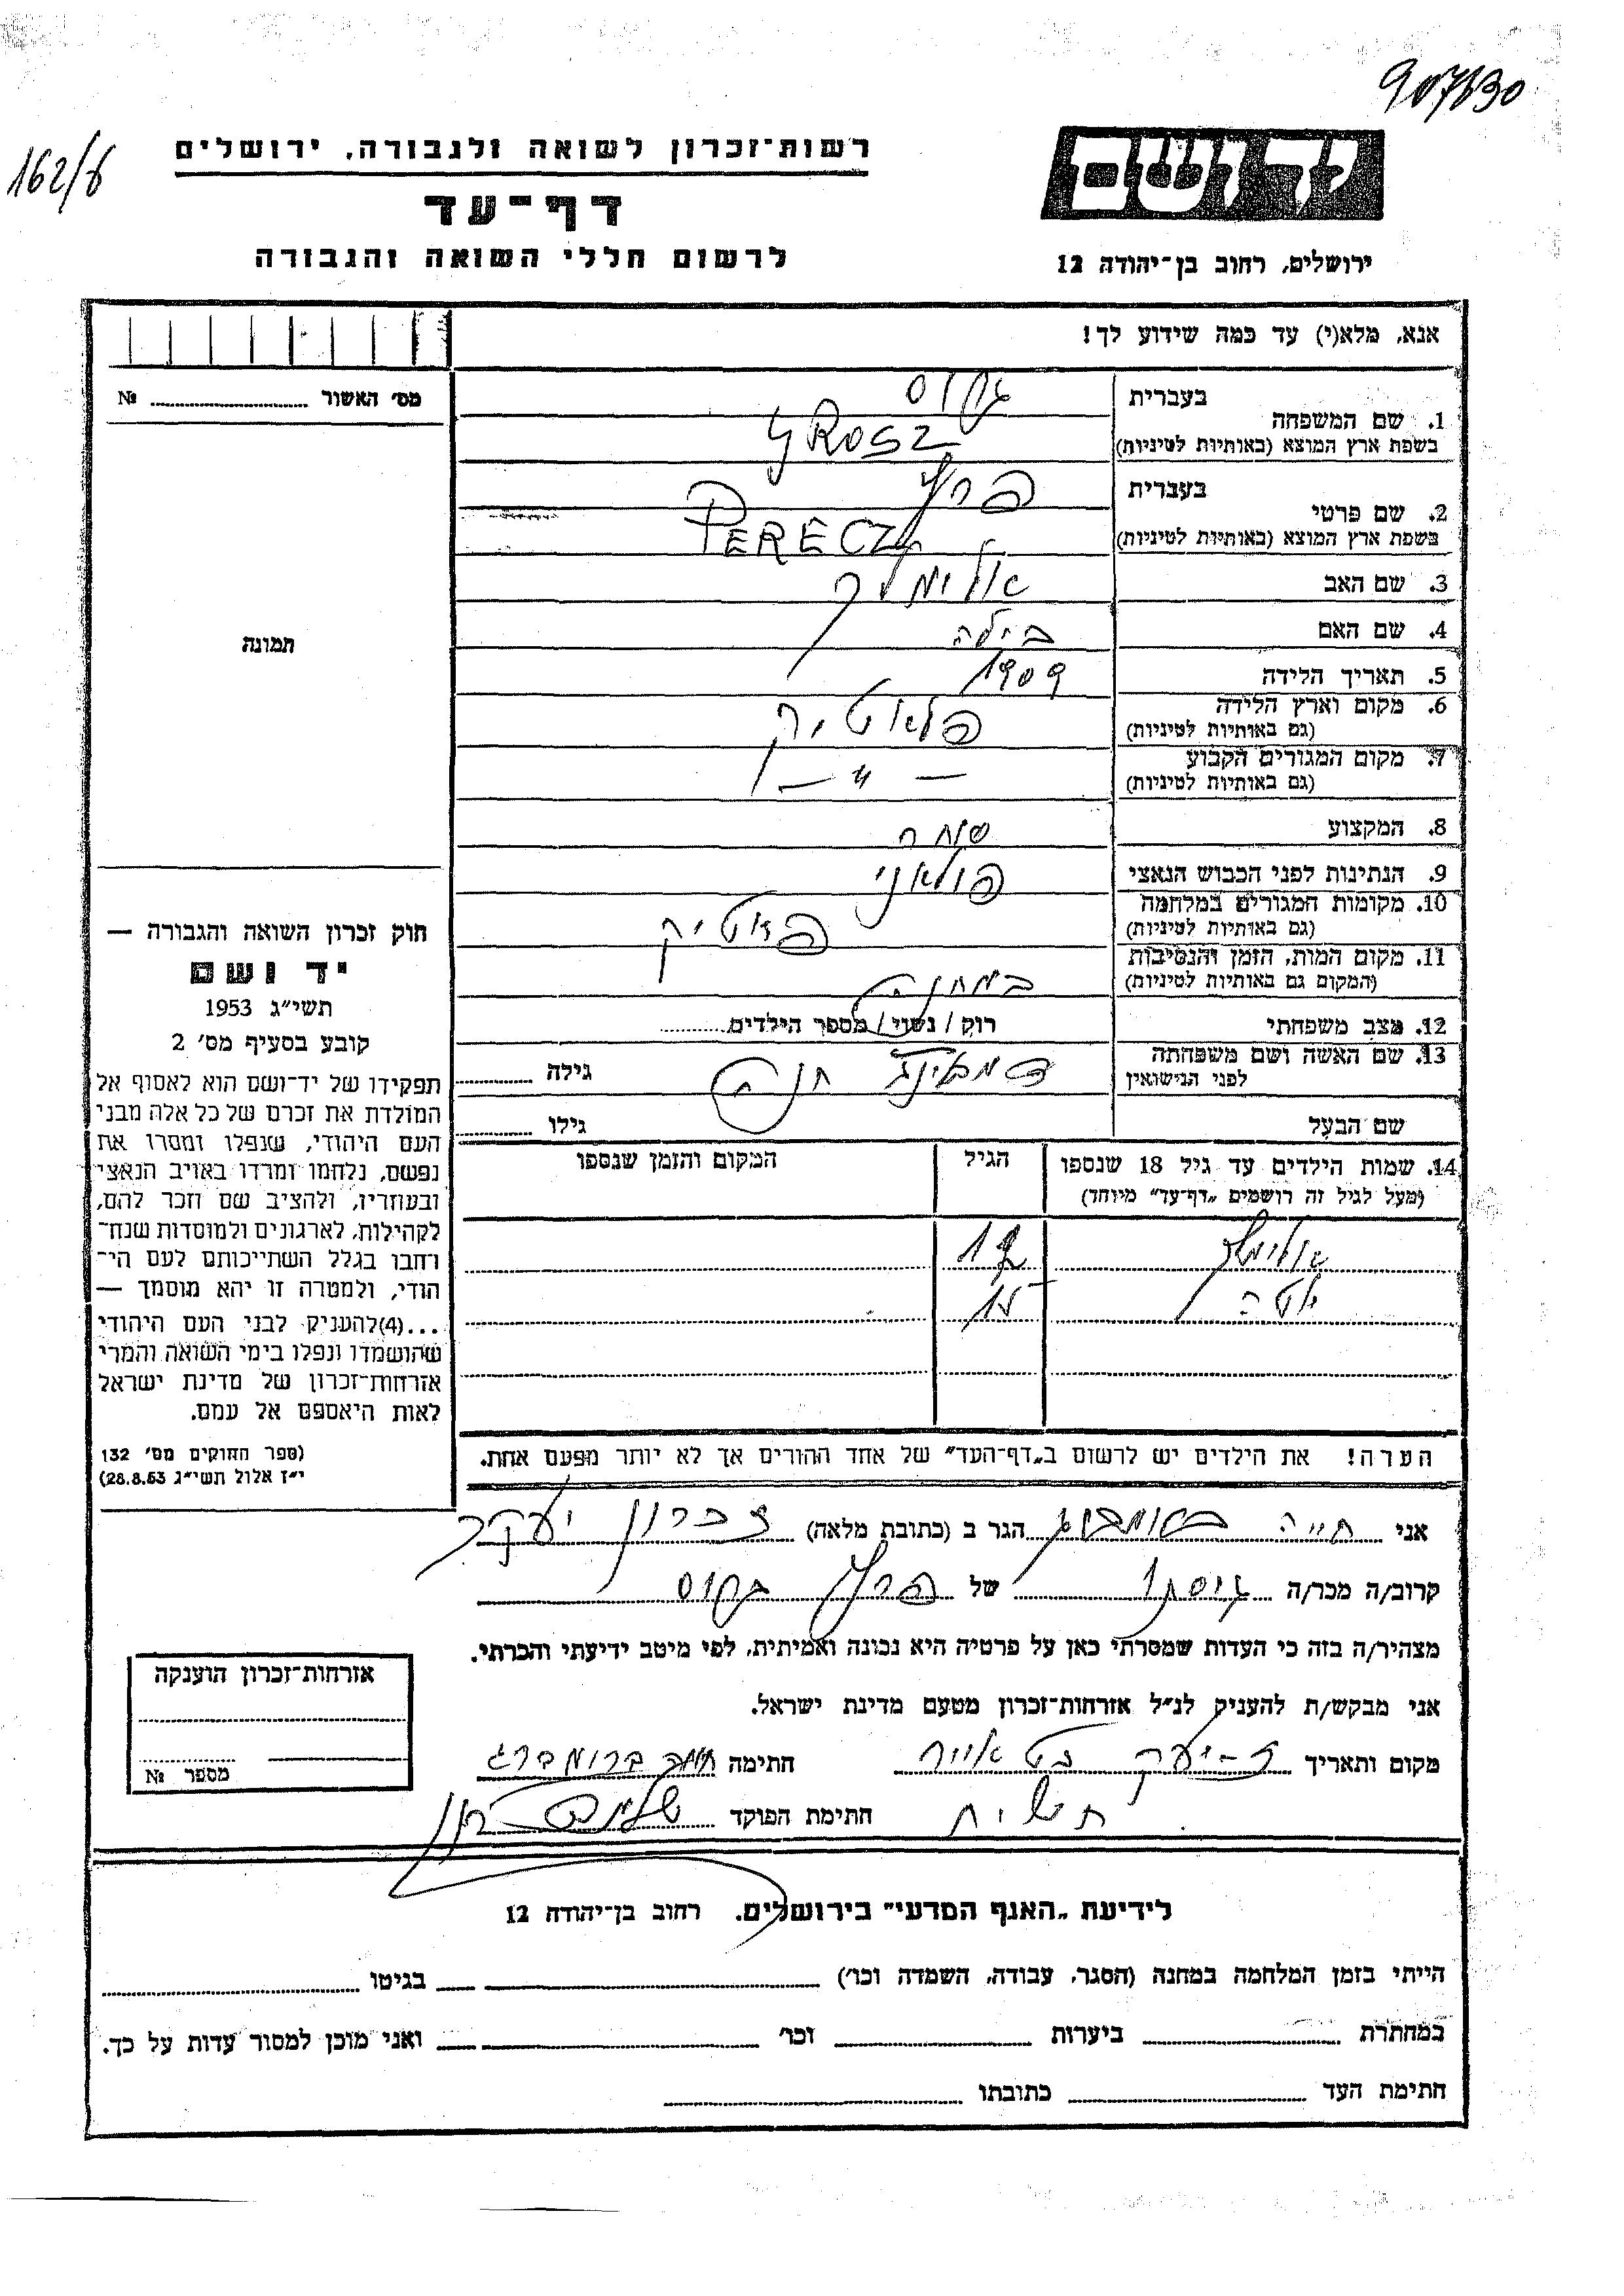 907830
162/6
יד ושם
רשות־זכרון לשואה ולגבורה, ירושלים
דף־עד
לרשום חללי השואה והגבורה
ירושלים, רחוב בן־יהודה 12
אנא, מלא(י) עד כמה שידוע לך!
מס׳ האשור № 
1. שם המשפחה
בעברית גרוס
בשפת ארץ המוצא (באותיות לטיניות) GROSZ
2. שם פרטי
בעברית פרץ
בשפת ארץ המוצא (באותיות לטיניות) PERECZ
3. שם האב אלימלך
4. שם האם ביילה
5. תאריך הלידה 1909
6. מקום וארץ הלידה
(גם באותיות לטיניות)
7. מקום המגורים הקבוע
(גם באותיות לטיניות) — " —
8. המקצוע סוחר
9. הנתינות לפני הכבוש הנאצי פולאני
10. מקומות המגורים במלחמה
(גם באותיות לטיניות)
11. מקום המות, הזמן והנסיבות
(המקום גם באותיות לטיניות) במחנה
12. מצב משפחתי רוק / נשוי / מספר הילדים
13. שם האשה ושם משפחתה
לפני הנישואין חנה גילה
שם הבעל גילו
14. שמות הילדים עד גיל 18 שנספו הגיל המקום והזמן שנספו
(מעל לגיל זה רושמים „דף־עד״ מיוחד)
אלימלך
יטה 15
הערה! את הילדים יש לרשום ב„דף־העד״ של אחד ההורים אך לא יותר מפעם אחת.
תמונה
חוק זכרון השואה והגבורה —
יד ושם
תשי״ג 1953
קובע בסעיף מס׳ 2
תפקידו של יד־ושם הוא לאסוף אל
המולדת את זכרם של כל אלה מבני
העם היהודי, שנפלו ומסרו את
נפשם, נלחמו ומרדו באויב הנאצי
ובעוזריו, ולהציב שם וזכר להם,
לקהילות, לארגונים ולמוסדות שנח־
רחבו בגלל השתייכותם לעם הי־
הודי, ולמטרה זו יהא מוסמך —
...(4)להעניק לבני העם היהודי
שהושמדו ונפלו בימי השואה והמרי
אזרחות־זכרון של מדינת ישראל
לאות היאספם אל עמם.
(ספר החוקים מס׳ 132
י״ז אלול תשי״ג 28.8.53)
אני חיה ברומברג הגר ב (כתובת מלאה) זכרון יעקב
קרוב/ה מכר/ה גיסתו של פרץ גרוס
מצהיר/ה בזה כי העדות שמסרתי כאן על פרטיה היא נכונה ואמיתית, לפי מיטב ידיעתי והכרתי.
אני מבקש/ת להעניק לנ״ל אזרחות־זכרון מטעם מדינת ישראל.
מקום ותאריך ז-יעקב כט אייר חתימה חיה ברומברג
תשי״ח חתימת הפוקד
אזרחות־זכרון הוענקה
מספר №
לידיעת „האגף המדעי״ בירושלים, רחוב בן־יהודה 12
הייתי בזמן המלחמה במחנה (הסגר, עבודה, השמדה וכו׳) בגיטו
במחתרת ביערות וכו׳ ואני מוכן למסור עדות על כך.
חתימת העד כתובתו